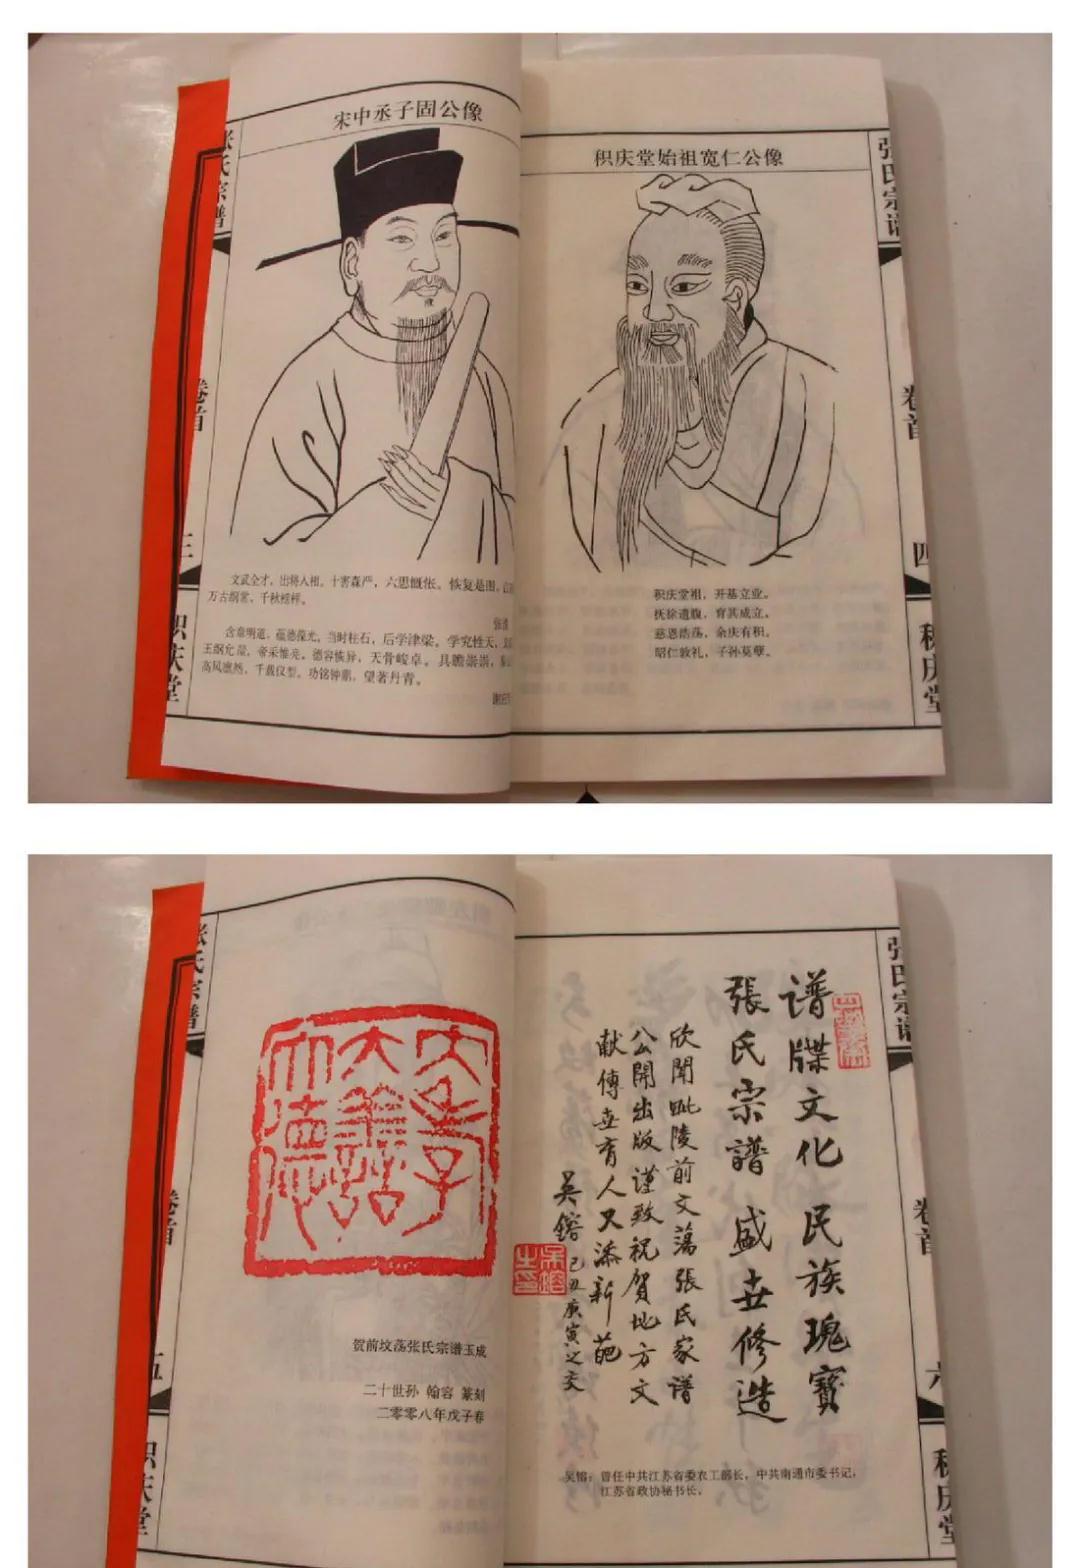 宋中丞子固公像
张氏宗谱
卷首
三
积庆堂
文武全才，出将入相。十害森严，六思慨怅。恢复是图，
万古纲常，千秋榜样。
含章明道，蕴德葆光。当时柱石，后学津梁。学究性天，
王纲允釐，帝采惟亮。德容恢异，天骨峻卓。具瞻崇崇，
高风凛然，千载仪型。功铭钟鼎，望著丹青。
积庆堂始祖宽仁公像
张氏宗谱
卷首
四
积庆堂
积庆堂祖，开基立业。
抚徐遗腹，育其成立。
慈恩浩荡，余庆有积。
昭仁敦礼，子孙莫孽。
张氏宗谱
卷首
五
积庆堂
文孝子
大善
大德
贺前坟荡张氏宗谱玉成
二十世孙 翰容 篆刻
二零零八年戊子春
张氏宗谱
卷首
六
积庆堂
谱牒文化民族瑰寶
張氏宗譜盛世修造
欣聞毗陵前文蕩張氏家谱
公開出版谨致祝賀地方文
献傳世有人又添新葩
吴鎔己丑庚寅之交
吴镕：曾任中共江苏省委农工部长，中共南通市委书记，
江苏省政协秘书长。